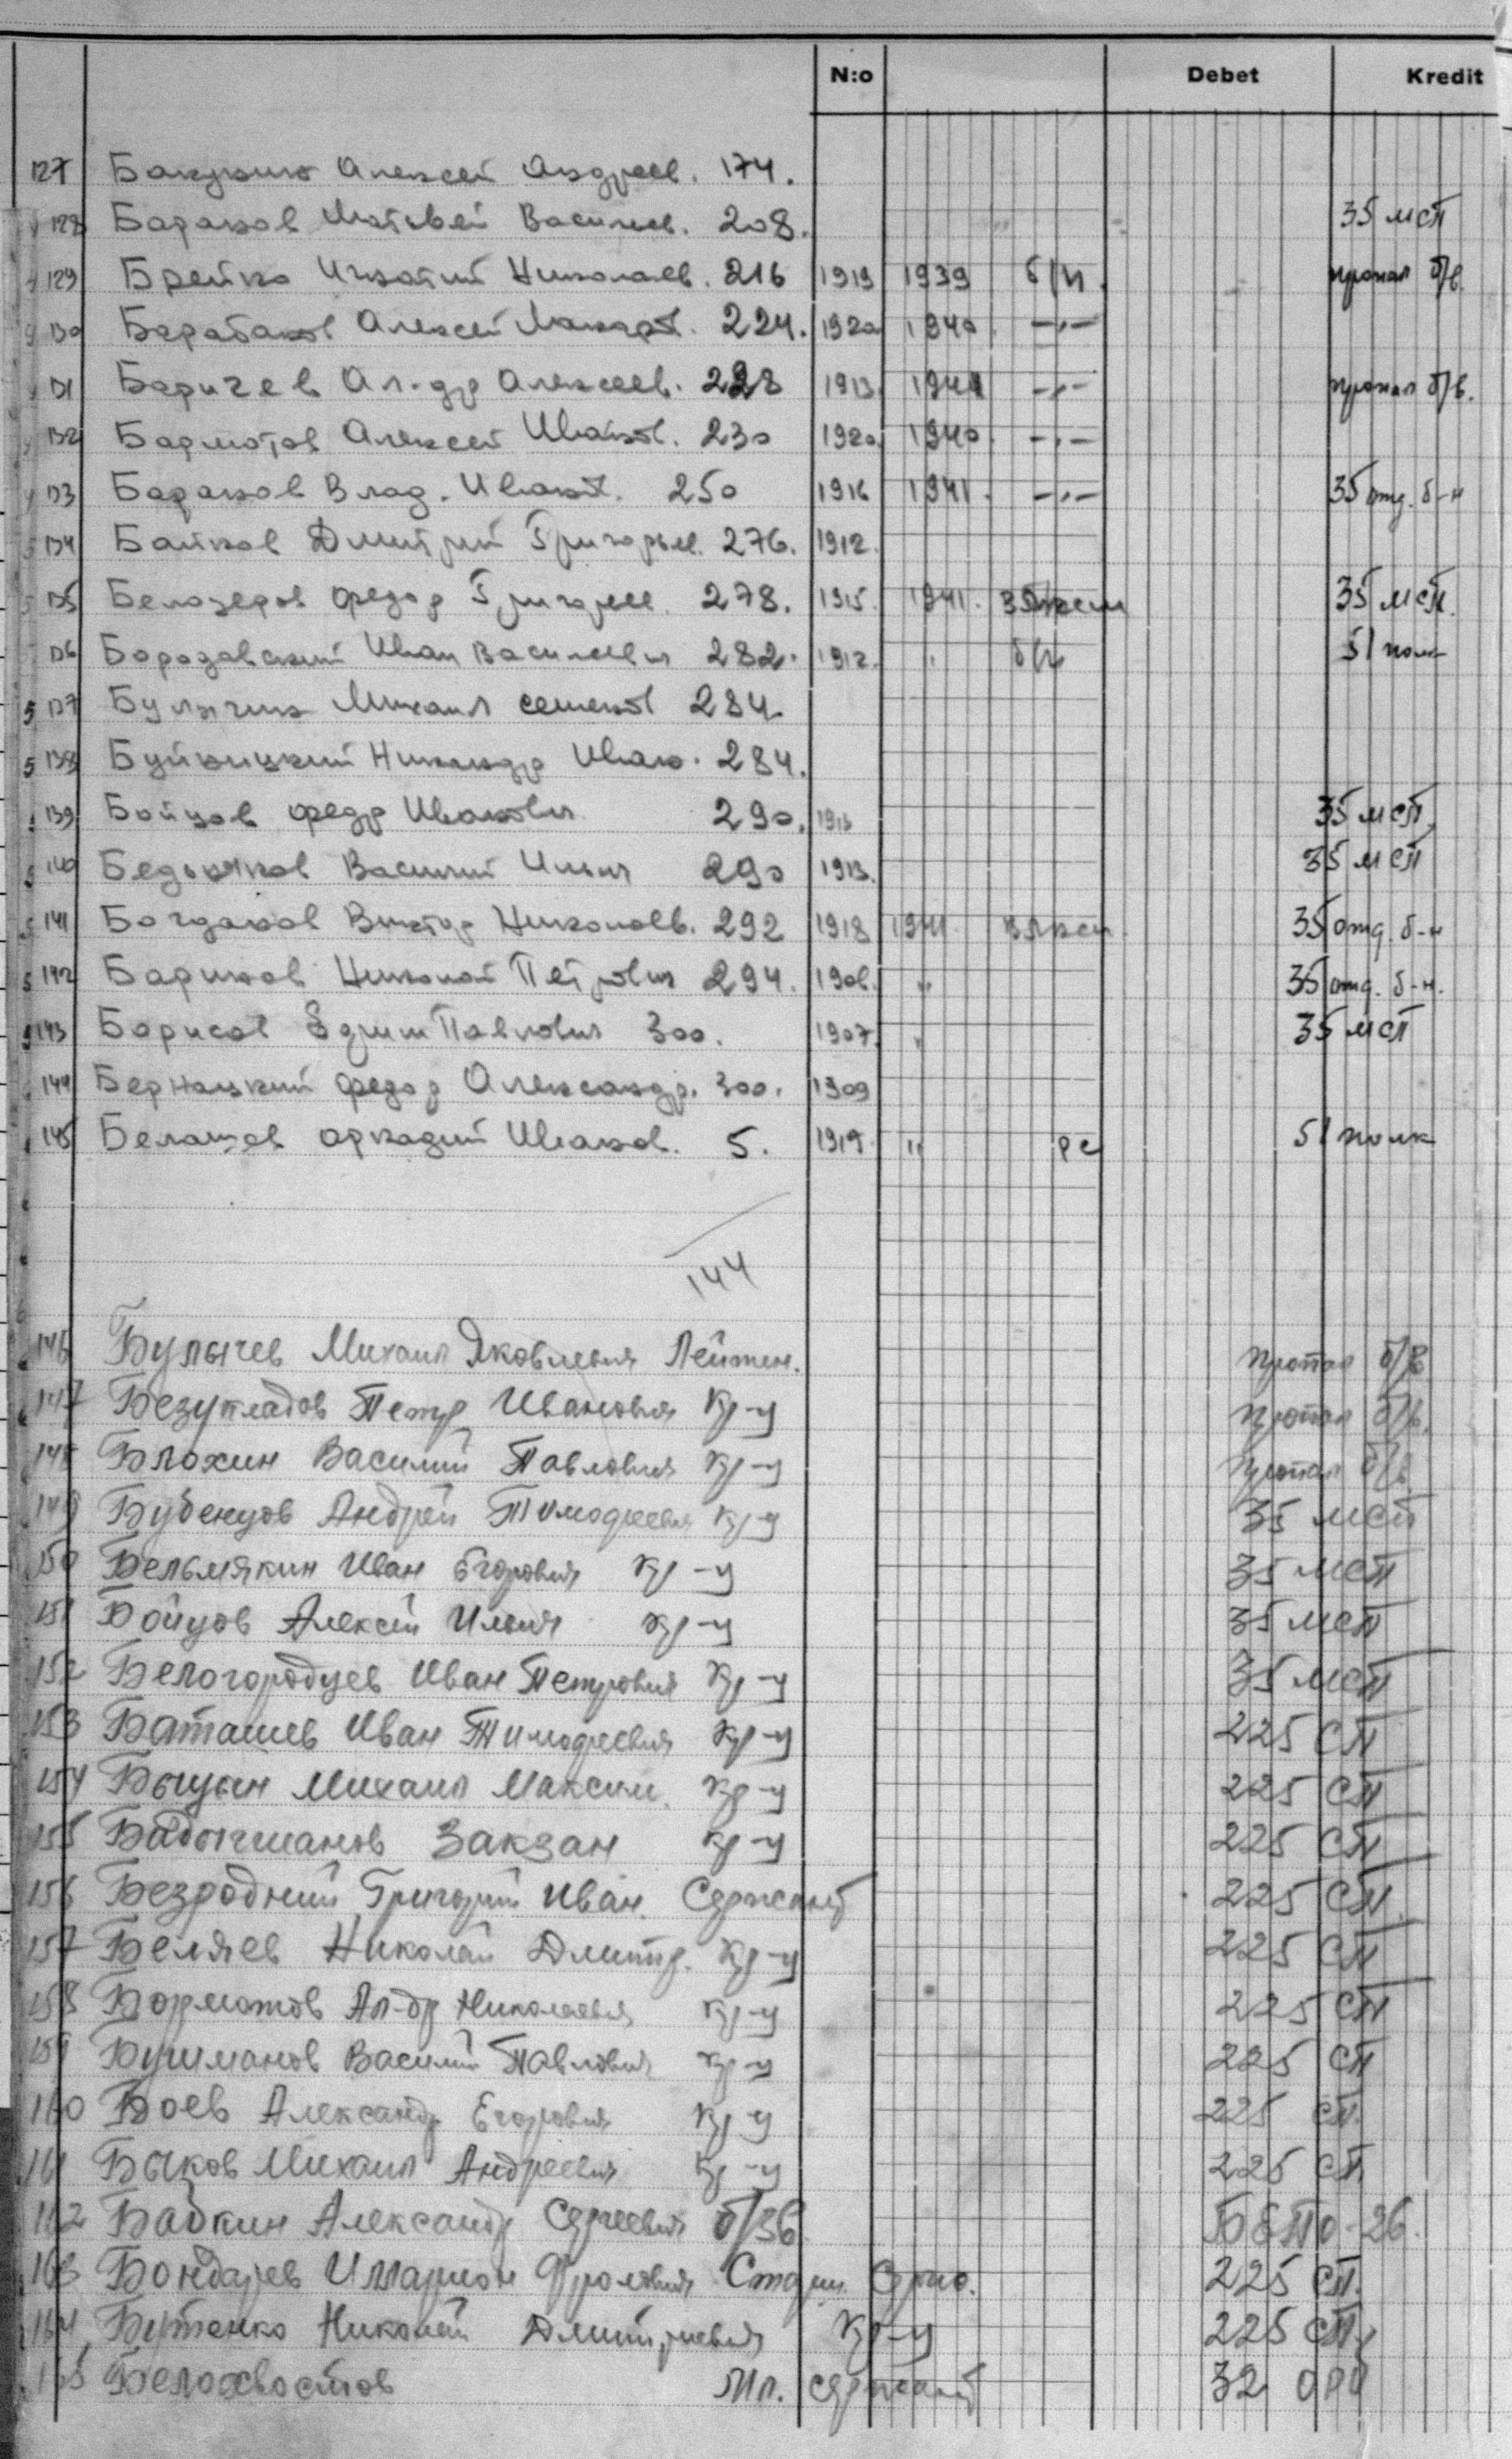 N:o Debet Kredit
127 Алексей Андреев. 174.
128 Баранов Матвей Васильев. 208. 35 мсп
129 Брейко Игнатий Николаев. 216 1919 1939 б/п. пропал б/в.
130 Барабанов Алексей Макаров. 224. 1920 1940. —„—
131 Баричев Ал-др Алексеев. 228 1913. —„— пропал б/в.
132 Барматов Алексей Иванов. 230 1920 1940. —„—
133 Баранов Влад. Иванов. 250 1916 1941. —„— 35 отд. б-н
134 Байков Дмитрий Григорьев. 276. 1912.
135 Белозеров Федор Григорьев. 278. 1915. 1941. 35 мсп.
136 Бородавский Иван Васильевич 282. 1912. „ б/п 51 полк
137 Булычик Михаил Семенов 284.
138 Буйвицкий Никандр Иванов. 284.
139 Бойцов Федор Иванович 290. 1913 35 мсп.
140 Василий Ильич 290 1913. 35 мсп
141 Богданов Виктор Николаев. 292 1918 1941. 35 отд. б-н
142 Баринов Николай Петрович 294. 1908. „ 35 отд. б-н.
143 Борисов Павлович 300. 1907. „ 35 мсп
144 Бернацкий Федор Александр. 300. 1909
145 Белашев Аркадий Иванов. 5. 1919. „ рс 51 полк
144
146 Булычев Михаил Яковлевич Лейтен. пропал б/в
147 Безукладов Петр Иванович кр-ц пропал б/в.
148 Блохин Василий Павлович кр-ц пропал б/в
149 Бубенцов Андрей Тимофеевич кр-ц 35 мсп
150 Бельмякин Иван Егорович кр-ц 35 мсп
151 Бойцов Алексей Ильич кр-ц 35 мсп
152 Белогородцев Иван Петрович кр-ц 35 мсп
153 Баташев Иван Тимофеевич кр-ц 225 сп
154 Михаил Максим. кр-ц 225 сп
155 Закзан кр-ц 225 сп
156 Безродний Григорий Иван. Сержант 225 сп.
157 Беляев Николай Дмитр. кр-ц 225 сп
158 Борматов Ал-др Николаевич кр-ц 225 сп
159 Бушманов Василий Павлович кр-ц 225 сп
160 Боев Александр Егорович кр-ц 225 сп.
161 Быков Михаил Андреевич кр-ц 225 сп.
162 Бабкин Александр Сергеевич б/зв.
163 Бондарев Илларион Фролович Старш. Серж. 225 сп.
164 Бутенко Николай Дмитриевич кр-ц 225 сп.
165 Белохвостов Мл. сержант 32